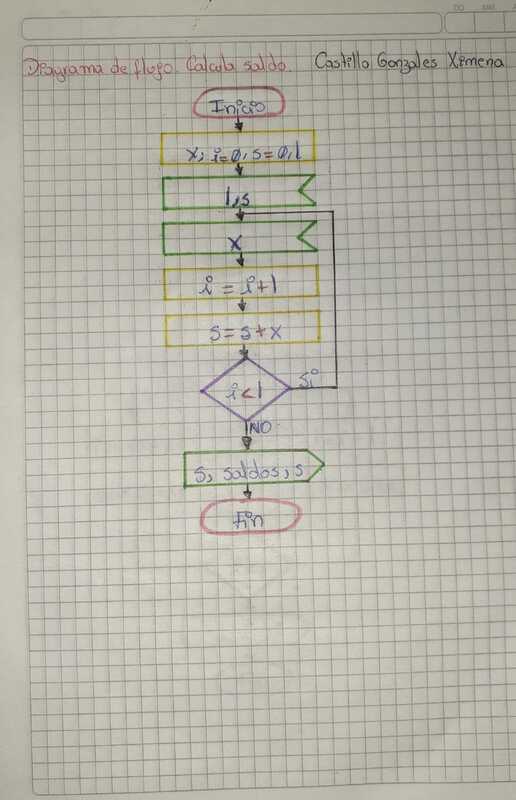 Diagrama de flujo. Calcula saldo. Castillo Gonzales Ximena
Inicio
x; i=0, s=0, l
l, s
x
i = i+1
s=s+x
i<l
Si
NO
s, saldos, s
Fin